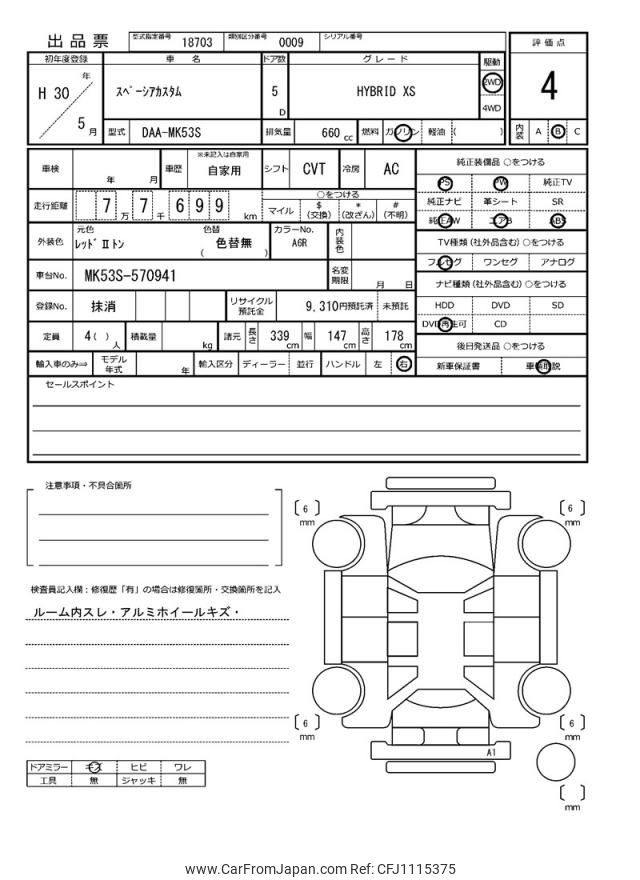 出品票 型式指定番号 18703 類別区分番号 0009 シリアル番号
初年度登録 車名 ドア数 グレード 駆動 評価点
H 30 年 5 月 スペーシアカスタム 5 D HYBRID XS 2WD 4WD 4
型式 DAA-MK53S 排気量 660 cc 燃料 ガソリン 軽油 ( ) 内装 A B C
車検 年 月 車歴 ※未記入は自家用 自家用 シフト CVT 冷房 AC
走行距離 7 万 7 千 6 9 9 km ○をつける マイル $ (交換) * (改ざん) # (不明)
外装色 元色 レッドⅡトン 色替 ( 色替無 ) カラーNo. A6R 内装色
車台No. MK53S-570941 名変期限 月 日
登録No. 抹消 リサイクル預託金 9,310円預託済 未預託
定員 4( ) 人 積載量 kg 諸元 長さ 339 cm 幅 147 cm 高さ 178 cm
輸入車のみ⇒ モデル年式 年 輸入区分 ディーラー 並行 ハンドル 左 右
純正装備品 ○をつける
PS PW 純正TV
純正ナビ 革シート SR
純正AW エアB ABS
TV種類 (社外品含む) ○をつける
フルセグ ワンセグ アナログ
ナビ種類 (社外品含む) ○をつける
HDD DVD SD
DVD再生可 CD
後日発送品 ○をつける
新車保証書 車輌取説
セールスポイント
注意事項・不具合箇所
検査員記入欄：修復歴「有」の場合は修復箇所・交換箇所を記入
ルーム内スレ・アルミホイールキズ・
ドアミラー キズ ヒビ ワレ
工具 無 ジャッキ 無
[ 6 ] mm
[ 6 ] mm
[ 6 ] mm
[ 6 ] mm
A1
[ ] mm
www.CarFromJapan.com Ref: CFJ1115375